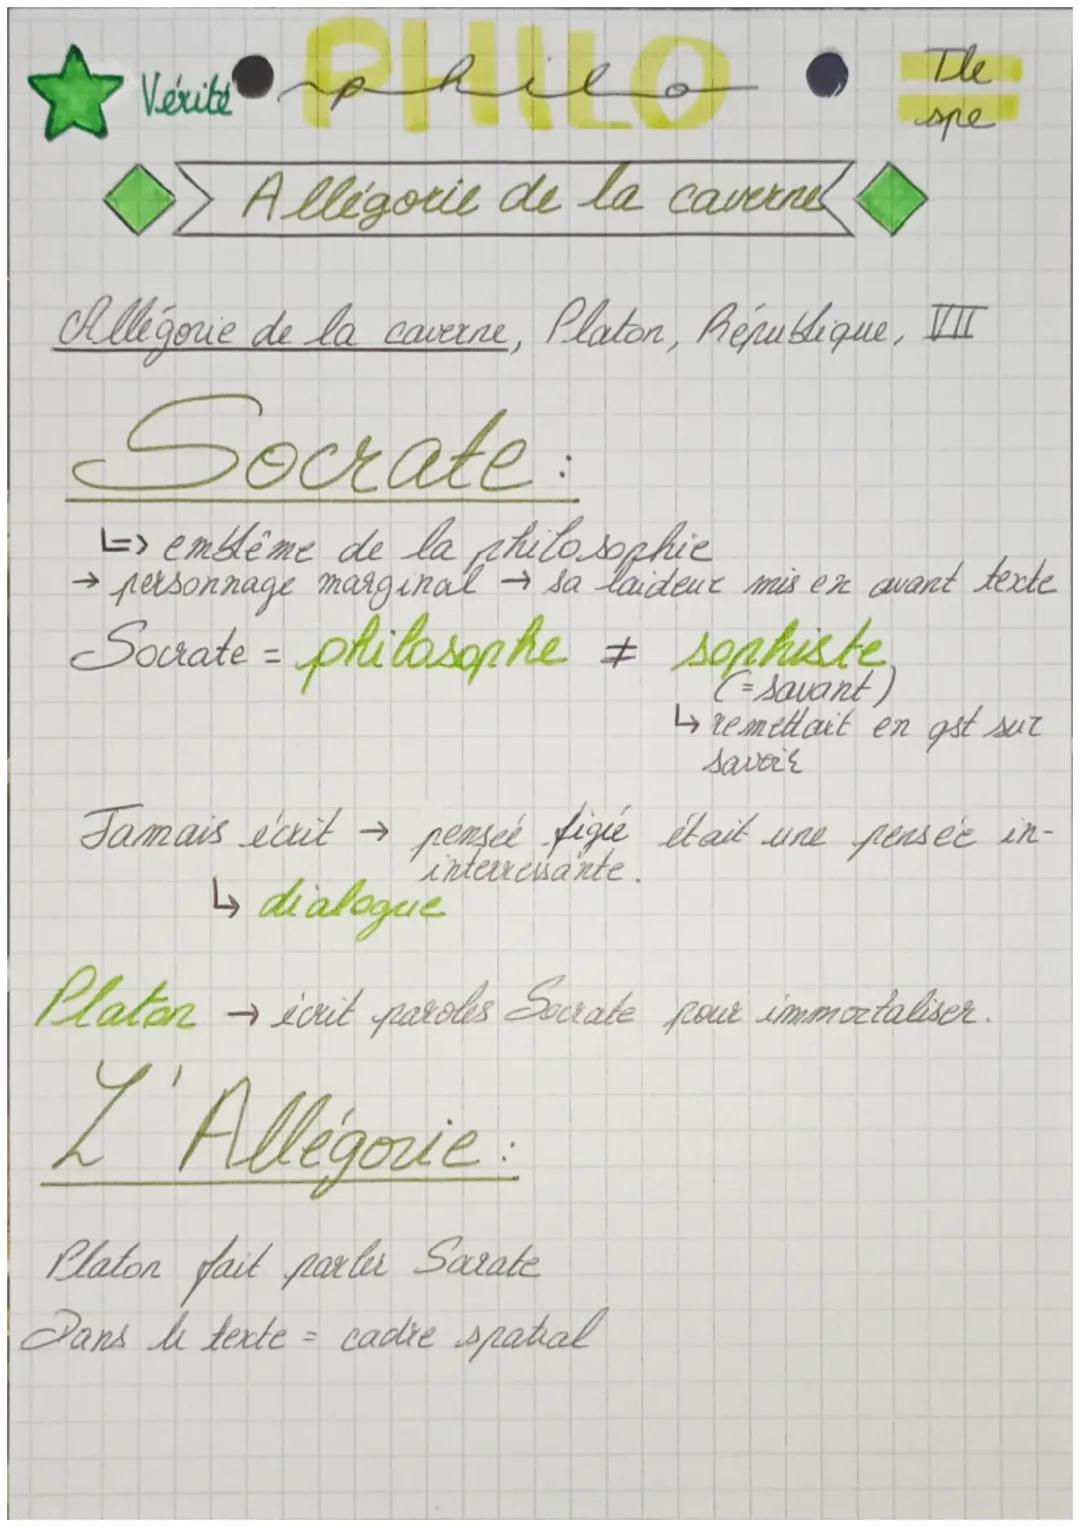 Vérité
PHILO
philo
Tle
spe
Allégorie de la caverne
Allégorie de la caverne, Platon, République, VII
Socrate :
↳ emblême de la philosophie
→ personnage marginal → sa laideur mis en avant texte
Socrate = philosophe ≠ sophiste
(= savant)
↳ remettait en qst sur
savoir
Jamais écrit → pensée figié était une pensée in-
interressante.
↳ dialogue
Platon → écrit paroles Socrate pour immortaliser.
L'Allégorie :
Platon fait parler Socrate
Dans le texte = cadre spatial